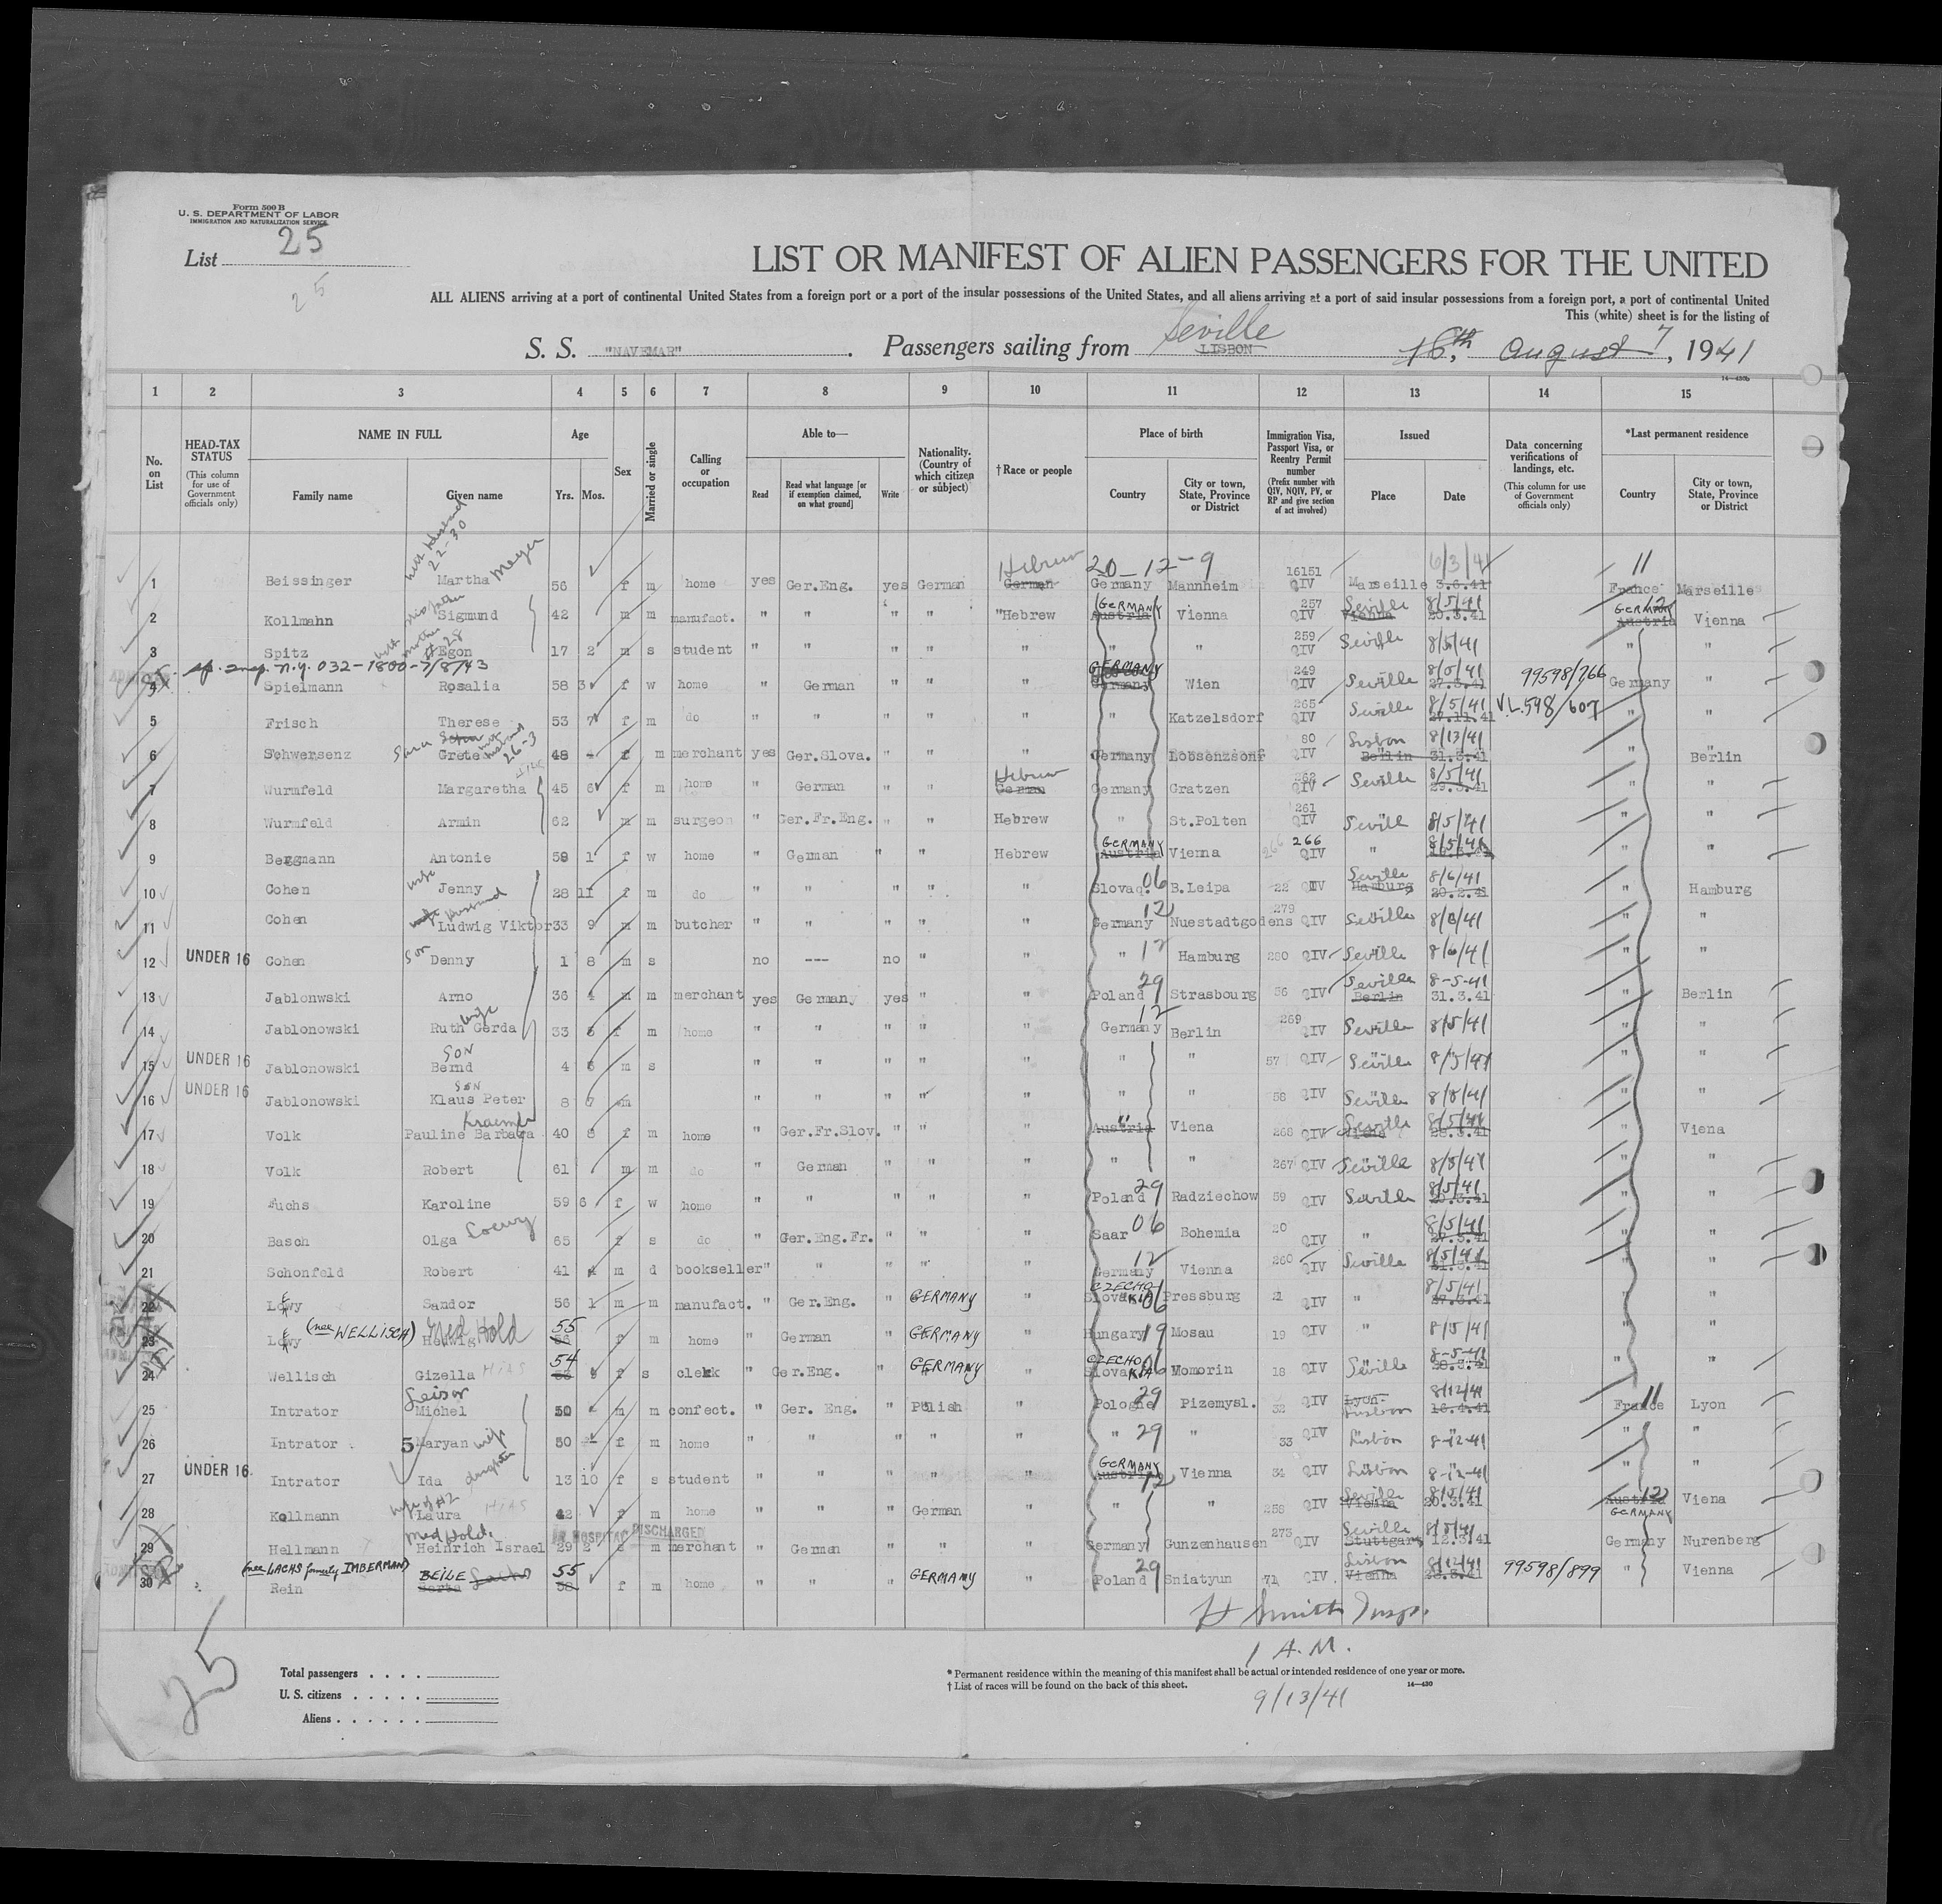 Form 500 B
U. S. DEPARTMENT OF LABOR
IMMIGRATION AND NATURALIZATION SERVICE
List 25
25
LIST OR MANIFEST OF ALIEN PASSENGERS FOR THE UNITED
ALL ALIENS arriving at a port of continental United States from a foreign port or a port of the insular possessions of the United States, and all aliens arriving at a port of said insular possessions from a foreign port, a port of continental United
This (white) sheet is for the listing of
S. S. "NAVEMAR". Passengers sailing from Seville LISBON 16th, August 7, 1941
14—430b
1 2 3 4 5 6 7 8 9 10 11 12 13 14 15
No. on List
HEAD-TAX STATUS (This column for use of Government officials only)
NAME IN FULL Family name Given name
Age Yrs. Mos.
Sex
Married or single
Calling or occupation
Able to— Read Read what language [or if exemption claimed, on what ground] Write
Nationality. (Country of which citizen or subject)
†Race or people
Place of birth Country City or town, State, Province or District
Immigration Visa, Passport Visa, or Reentry Permit number (Prefix number with QIV, NQIV, PV, or RP and give section of act involved)
Issued Place Date
Data concerning verifications of landings, etc. (This column for use of Government officials only)
*Last permanent residence Country City or town, State, Province or District
1 Beissinger Martha Meyer 56 f m home yes Ger.Eng. yes German Hebrew German 20-12-9 Germany Mannheim 16151 QIV Marseille 6/3/41 3.6.41 11 France Marseilles
2 Kollmann Sigmund 42 m m manufact. " " " " "Hebrew GERMANY Austria Vienna 257 QIV Seville Vienna 8/5/41 20.3.41 GERMANY 12 Austria Vienna
3 Spitz Egon 17 2 m s student " " " " " " " 259 QIV Seville 8/5/41 " "
032-1800-7/8/43
4 Spielmann Rosalia 58 3 f w home " German " " " GERMANY Germany Wien 249 QIV Seville 8/5/41 27.3.41 99598/266 Germany "
5 Frisch Therese 53 7 f m do " " " " " " Katzelsdorf 265 QIV Seville 8/5/41 27.11.41 V.L.598/607 " "
6 Schwersenz Sara Grete 26-3 48 - f m merchant yes Ger.Slova. " " " Germany Lobsenzsonf 80 QIV Lisbon Berlin 8/13/41 31.3.41 " Berlin
7 Wurmfeld Margaretha 45 6 f m home " German " " Hebrew German Germany Gratzen 262 QIV Seville 8/5/41 29.3.41 " "
8 Wurmfeld Armin 62 m m surgeon " Ger.Fr.Eng. " " Hebrew " St.Polten 261 QIV Seville 8/5/41 " "
9 Bergmann Antonie 59 1 f w home " German " " Hebrew GERMANY Austria Vienna 266 266 QIV " 8/5/41 " "
10 Cohen wife Jenny 28 11 f m do " " " " " Slovaq. 06 B.Leipa 22 QIV Seville Hamburg 8/6/41 20.2.41 " Hamburg
11 Cohen husband Ludwig Viktor 33 9 m m butcher " " " " " 12 Germany Nuestadtgodens 279 QIV Seville 8/6/41 " "
12 UNDER 16 Cohen son Denny 1 8 m s no --- no " " " 12 Hamburg 280 QIV Seville 8/6/41 " "
13 Jablonwski Arno 36 4 m m merchant yes Germany yes " " 29 Poland Strasbourg 56 QIV Seville Berlin 8-5-41 31.3.41 " Berlin
14 Jablonowski wife Ruth Gerda 33 8 f m home " " " " " 12 Germany Berlin 269 QIV Seville 8/5/41 " "
15 UNDER 16 Jablonowski SON Bernd 4 8 m s " " " " " " " 57 QIV Seville 8/5/41 " "
16 UNDER 16 Jablonowski SON Klaus Peter 8 7 m " " " " " " " 58 QIV Seville 8/5/41 " "
17 Volk Kraemer Pauline Barbara 40 8 f m home " Ger.Fr.Slov. " " " " Austria Viena 268 QIV Seville 8/5/41 28.3.41 " Viena
18 Volk Robert 61 m m do " German " " " " " 267 QIV Seville 8/5/41 " "
19 Fuchs Karoline 59 6 f w home " " " " " 29 Poland Radziechow 59 QIV Seville 8/5/41 " "
20 Basch Olga Loewy 65 f s do " Ger.Eng.Fr. " " " Saar 06 Bohemia 20 QIV " 8/5/41 27.3.41 " "
21 Schonfeld Robert 41 4 m d bookseller " " " " " 12 Germany Vienna 260 QIV Seville 8/5/41 " "
22 Löwy Sandor 56 1 m m manufact. " Ger.Eng. GERMANY " CZECHO Slovakia 06 Pressburg 21 QIV " 8/5/41 27.3.41 " "
23 Löwy (nee WELLISCH) Hedwig Med Hold 55 56 f m home " German " GERMANY " Hungary 19 Mosau 19 QIV " 8/5/41 " "
24 Wellisch Gizella HIAS 54 f s clerk " Ger.Eng. " GERMANY " CZECHO Slovakia 06 Momorin 18 QIV Seville 8-5-41 28.3.41 " "
25 Intrator Leisor Michel 50 - m m confect. " Ger. Eng. " Polish " Pologne 29 Pizemysl. 32 QIV Lyon Lisbon 8/12/41 16.4.41 France 11 Lyon
26 Intrator Maryan wife 50 f m home " " " " " " 29 " 33 QIV Lisbon 8-12-41 " "
27 UNDER 16 Intrator Ida daughter 13 10 f s student " " " " " GERMANY Austria 12 Vienna 34 QIV Lisbon 8-12-41 " "
28 Kollmann wife of #2 Laura HIAS 42 f m home " " " German " " " 258 QIV Seville Vienna 8/5/41 20.3.41 Austria 12 GERMANY Viena
29 Hellmann Med Hold. Heinrich Israel HOSPITAL DISCHARGED 29 2 m merchant " German " " " Germany Gunzenhausen 273 QIV Seville Stuttgart 8/5/41 12.3.41 Germany Nurenberg
30 (nee LACHS formerly IMBERMAN) Rein BEILE Berta 55 58 f m home " " " GERMANY " 29 Poland Sniatyun 71 QIV Lisbon Vienna 8/12/41 99598/899 " Vienna
H Smith Insp.
1 A.M.
9/13/41
25
Total passengers . . . .
U. S. citizens . . . . .
Aliens . . . . . .
* Permanent residence within the meaning of this manifest shall be actual or intended residence of one year or more.
† List of races will be found on the back of this sheet.
14—430